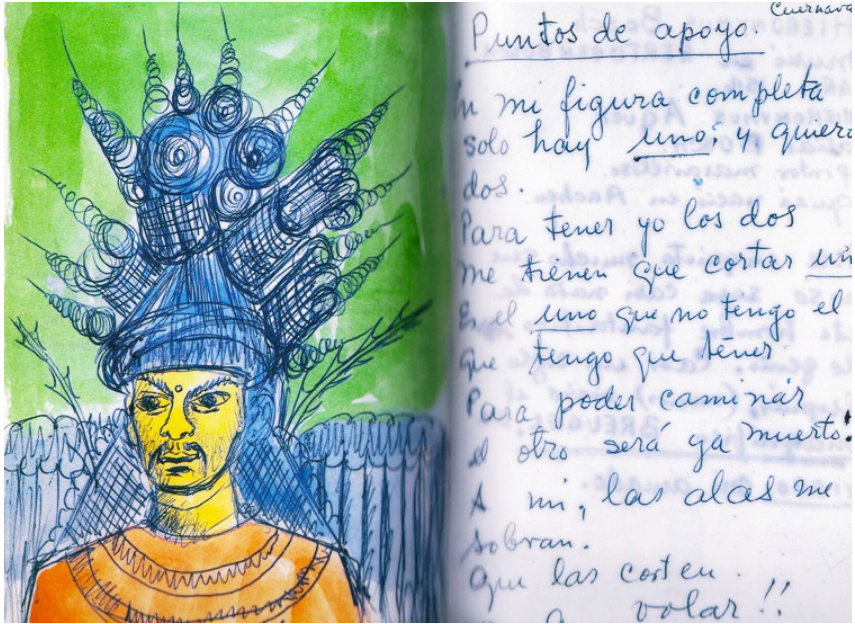 Cuernava
Puntos de apoyo.
En mi figura completa
solo hay uno; y quiero
dos.
Para tener yo los dos
me tienen que cortar un
Es el uno que no tengo el
que tengo que tener
Para poder caminar
el otro será ya muerto!
A mi, las alas me
sobran.
Que las corten.
volar!!